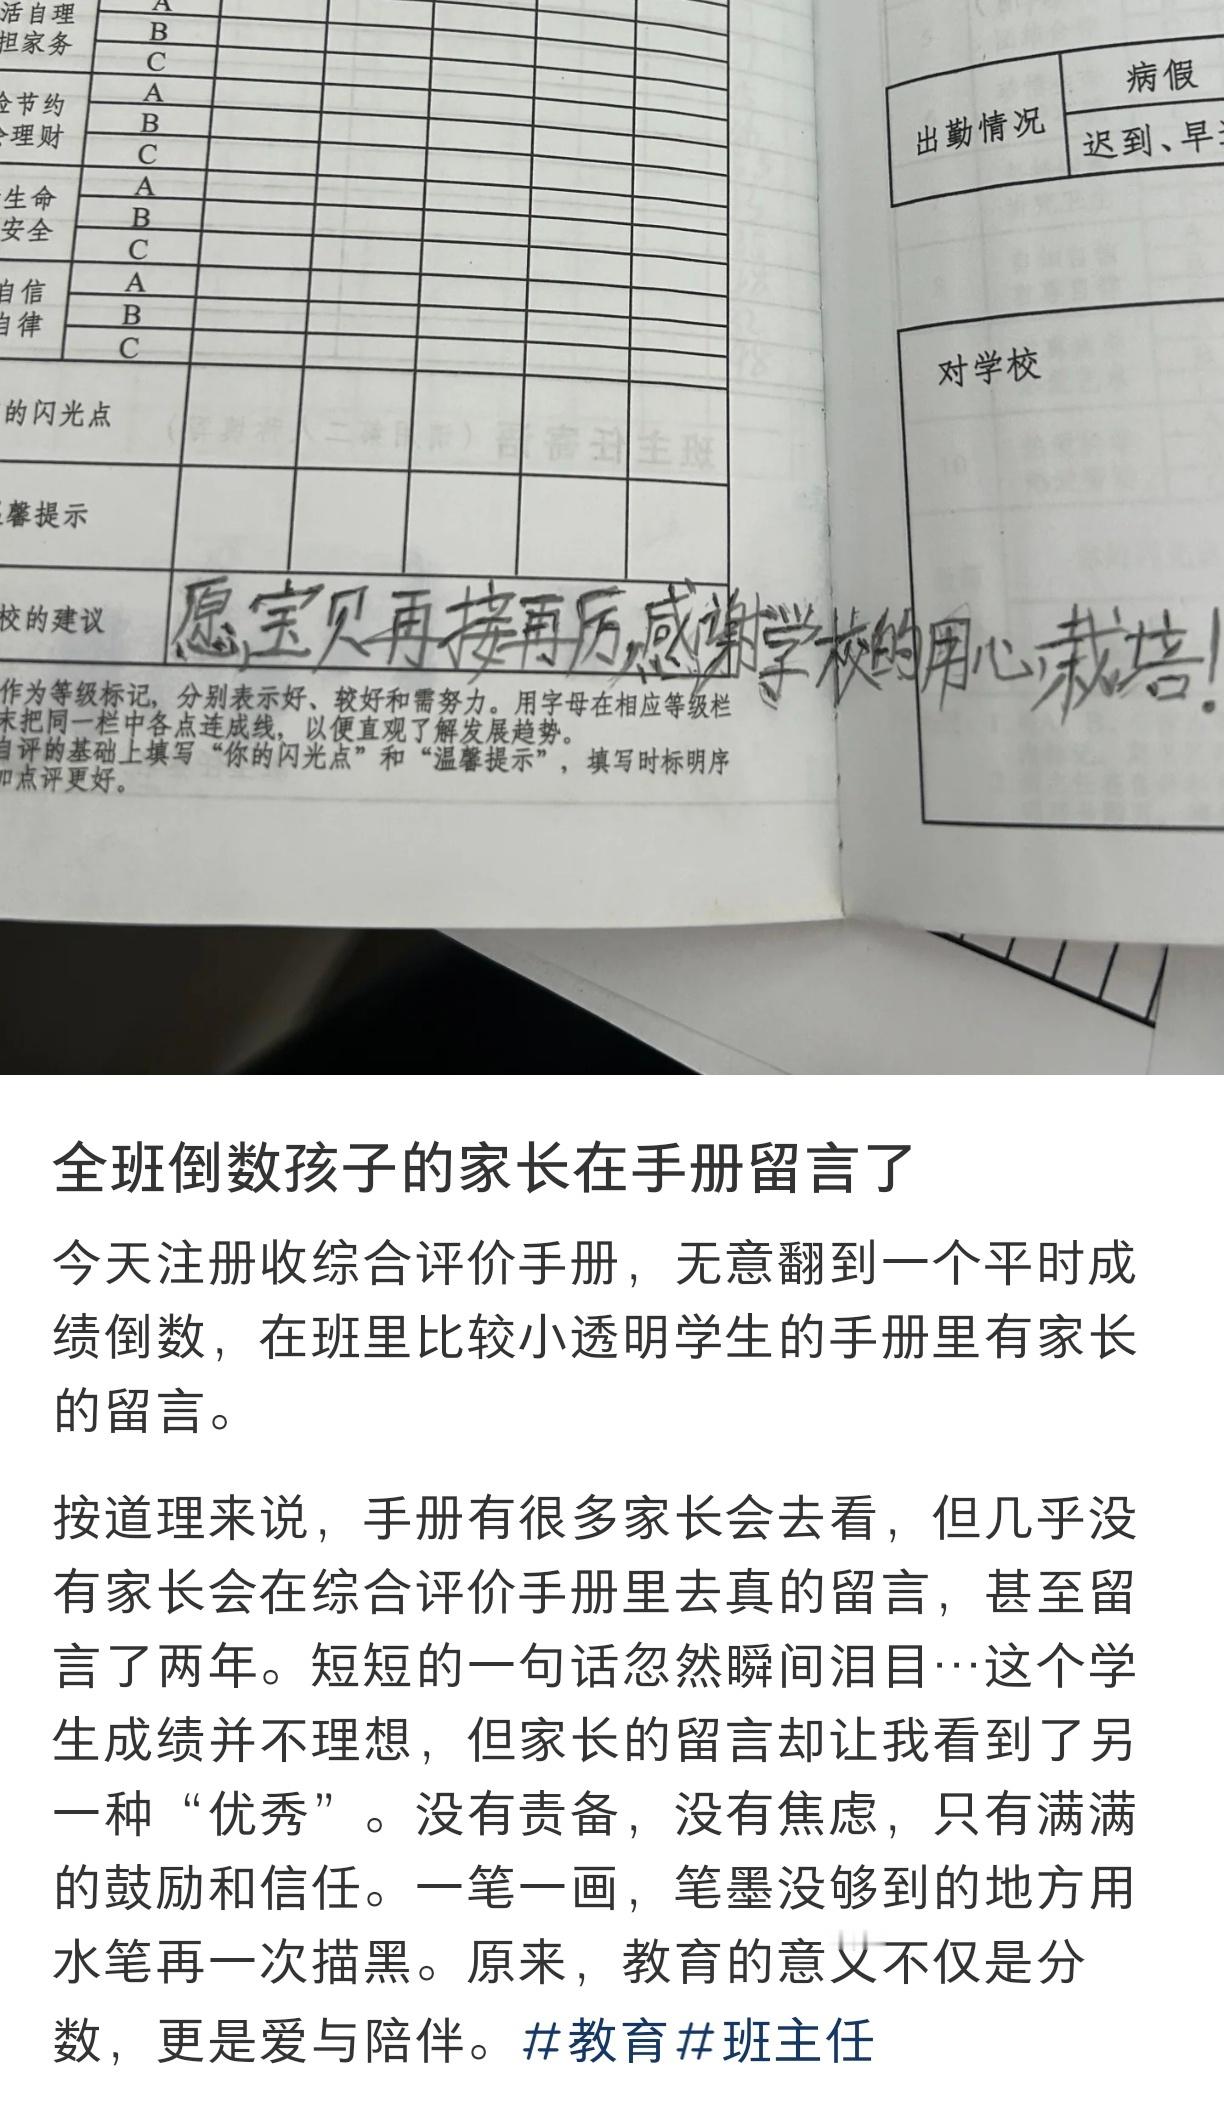 活自理
担家务
A
B
C
节约
理财
A
B
C
生命
安全
A
B
C
自信
自律
A
B
C
的闪光点
馨提示
校的建议
愿宝贝再接再厉,感谢学校的用心栽培!
作为等级标记，分别表示好、较好和需努力。用字母在相应等级栏
末把同一栏中各点连成线，以便直观了解发展趋势。
自评的基础上填写“你的闪光点”和“温馨提示”，填写时标明序
加点评更好。
班主任寄语（请用第二人称填写）
出勤情况
病假
迟到、早
对学校
10
全班倒数孩子的家长在手册留言了
今天注册收综合评价手册，无意翻到一个平时成
绩倒数，在班里比较小透明学生的手册里有家长
的留言。
按道理来说，手册有很多家长会去看，但几乎没
有家长会在综合评价手册里去真的留言，甚至留
言了两年。短短的一句话忽然瞬间泪目…这个学
生成绩并不理想，但家长的留言却让我看到了另
一种“优秀”。没有责备，没有焦虑，只有满满
的鼓励和信任。一笔一画，笔墨没够到的地方用
水笔再一次描黑。原来，教育的意义不仅是分
数，更是爱与陪伴。#教育#班主任